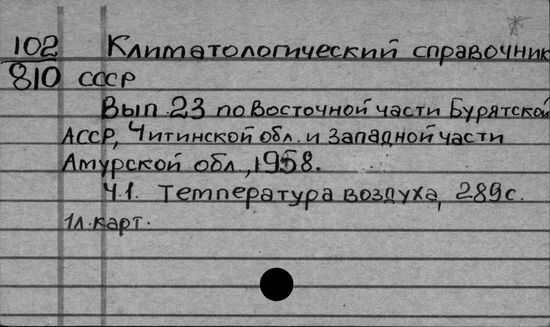 102 Климатологический справочник
810 СССР
Вып. 23 по Восточной части Бурятской
АССР, Читинской обл. и Западной части
Амурской обл., 1958.
Ч.1. Температура воздуха, 289с.
1л.карт.